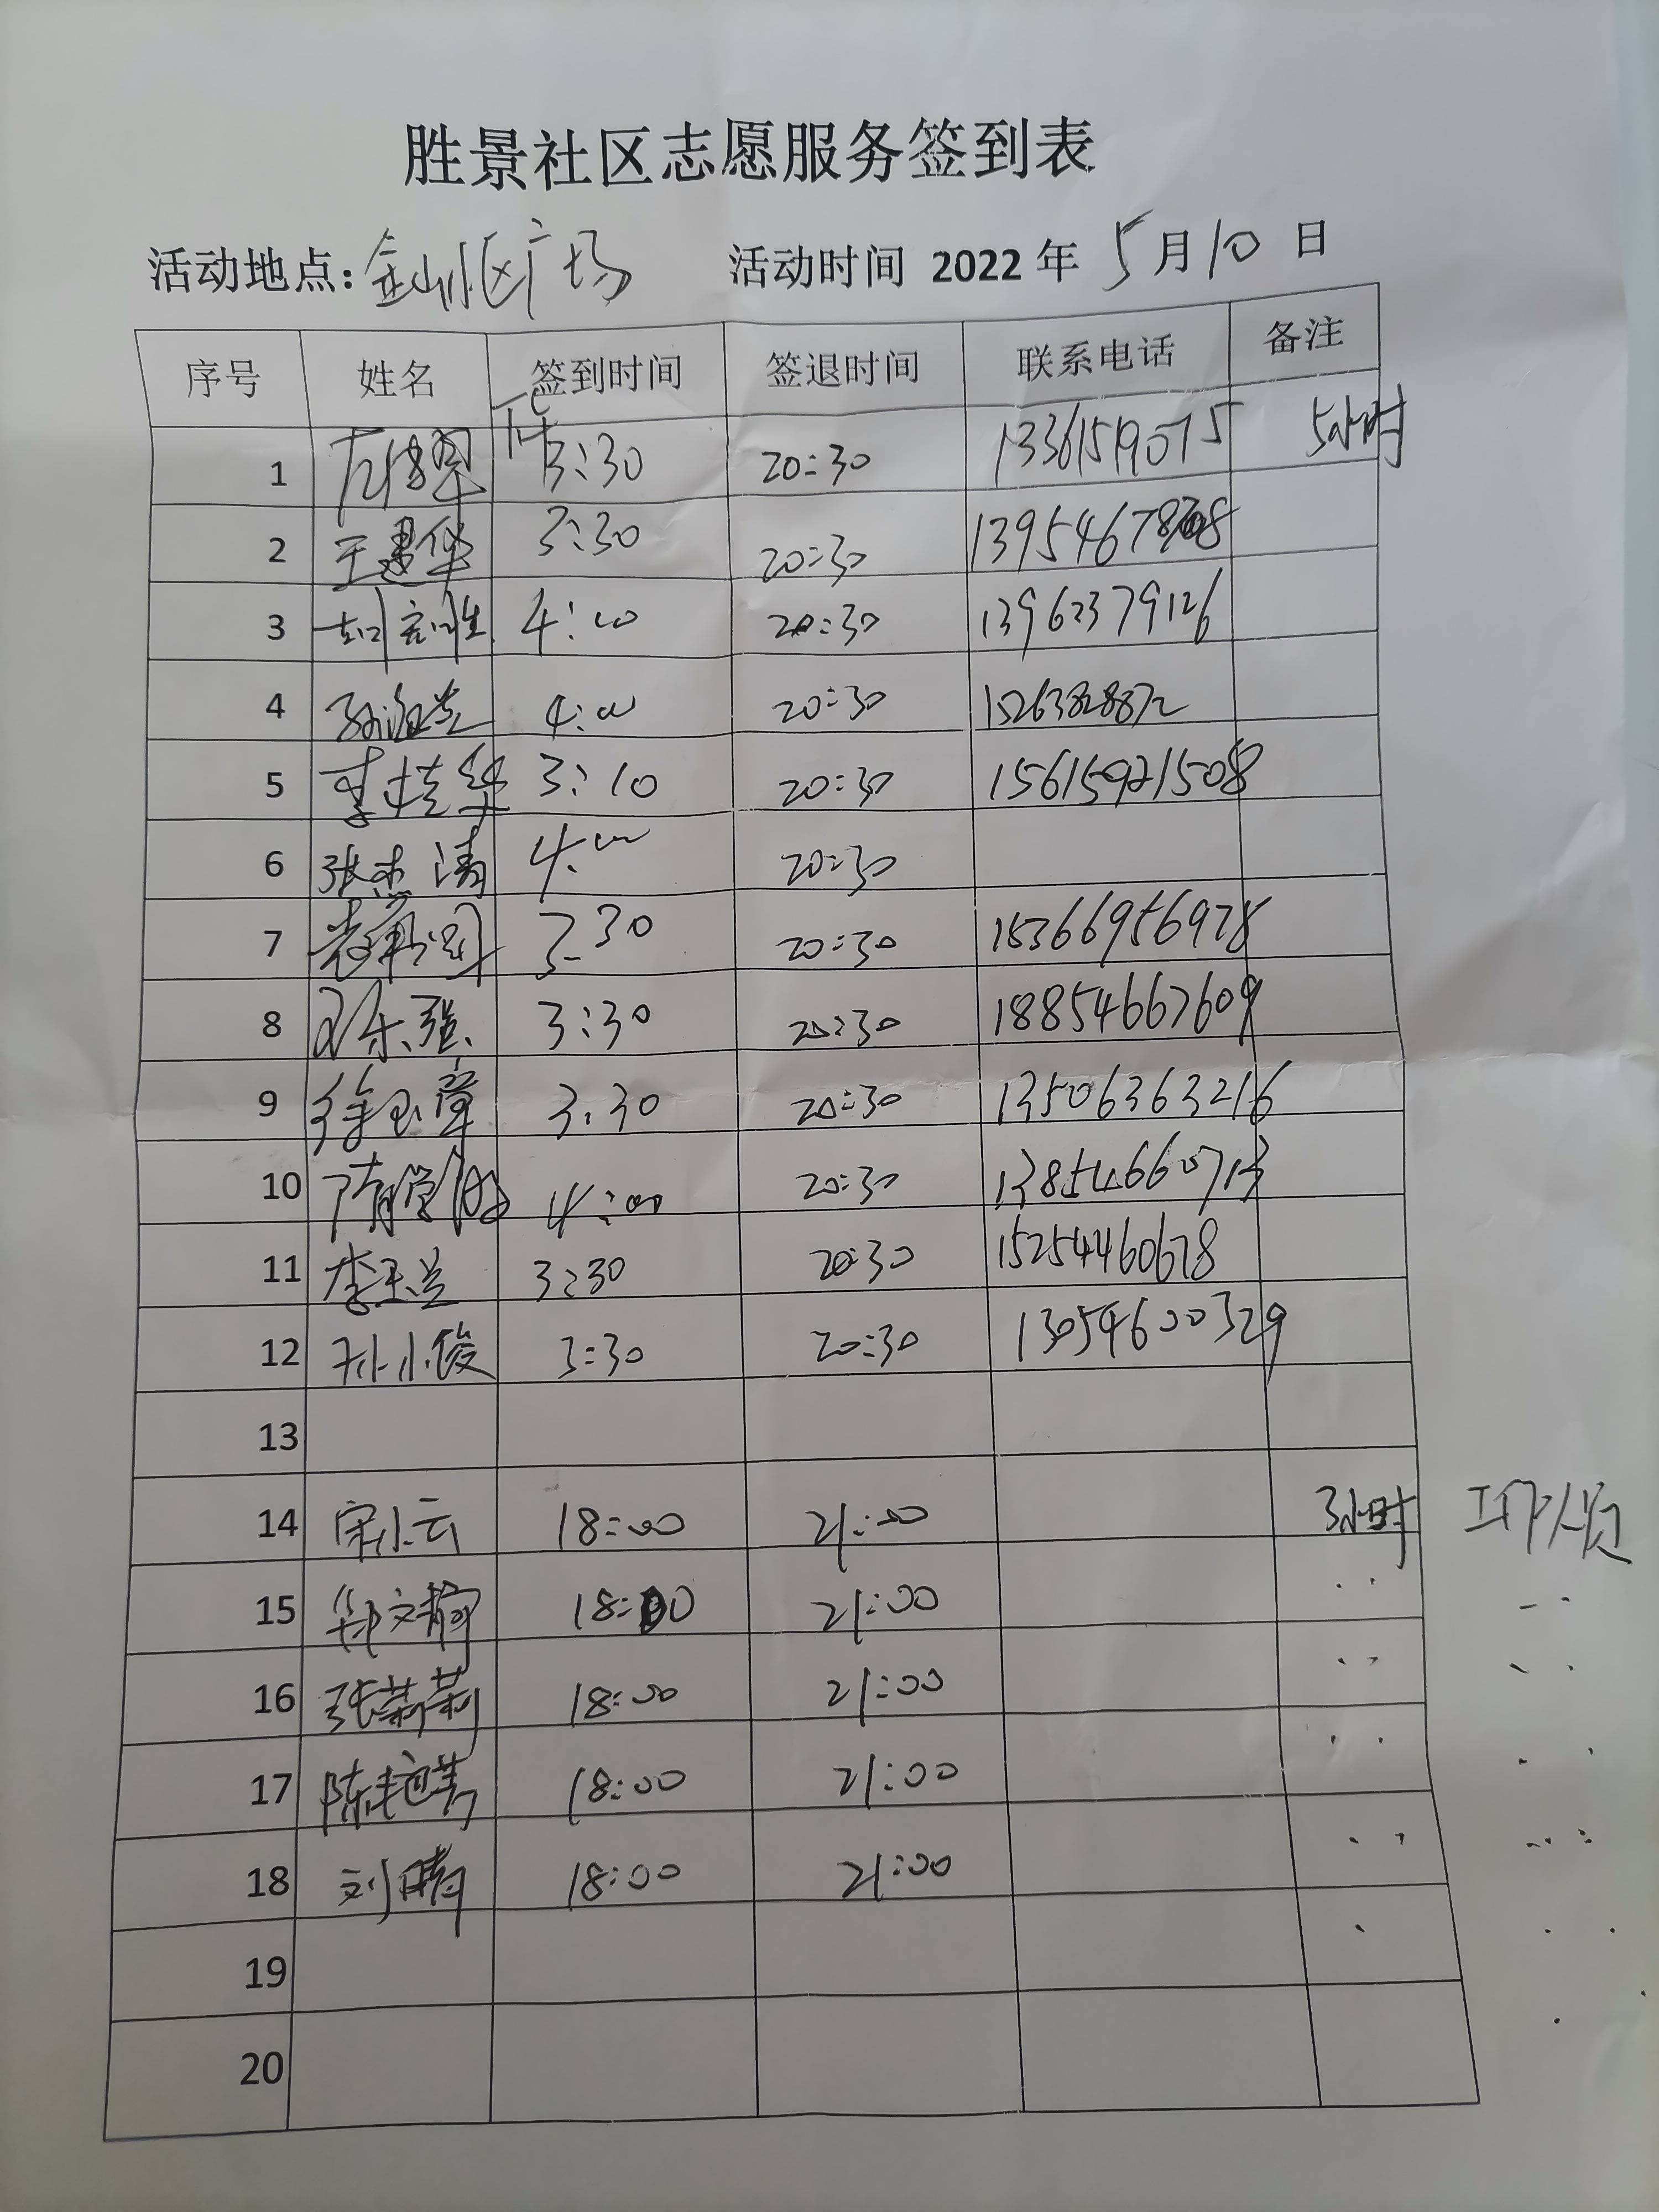 胜景社区志愿服务签到表
活动地点:金山小区广场 活动时间 2022年5月10日
序号 姓名 签到时间 签退时间 联系电话 备注
1 下午3:30 20:30 13361519075 5小时
2 王建华 3:30 20:30
3 4:00 20:30 13962379126
4 4:00 20:30 15263828872
5 李桂华 3:10 20:30 156159921508
6 张杰涛 4:00 20:30
7 3:30 20:30 15366956978
8 邓乐强 3:30 20:30 18854667609
9 徐玉章 3:30 20:30 13506363216
10 4:00 20:30 13854660713
11 李玉兰 3:30 20:30 15254460678
12 孙小俊 3:30 20:30 13054600329
13
14 宋小云 18:00 21:00 3小时 工作人员
15 郑文静 18:00 21:00
16 张莉莉 18:00 21:00
17 18:00 21:00
18 刘晴 18:00 21:00
19
20